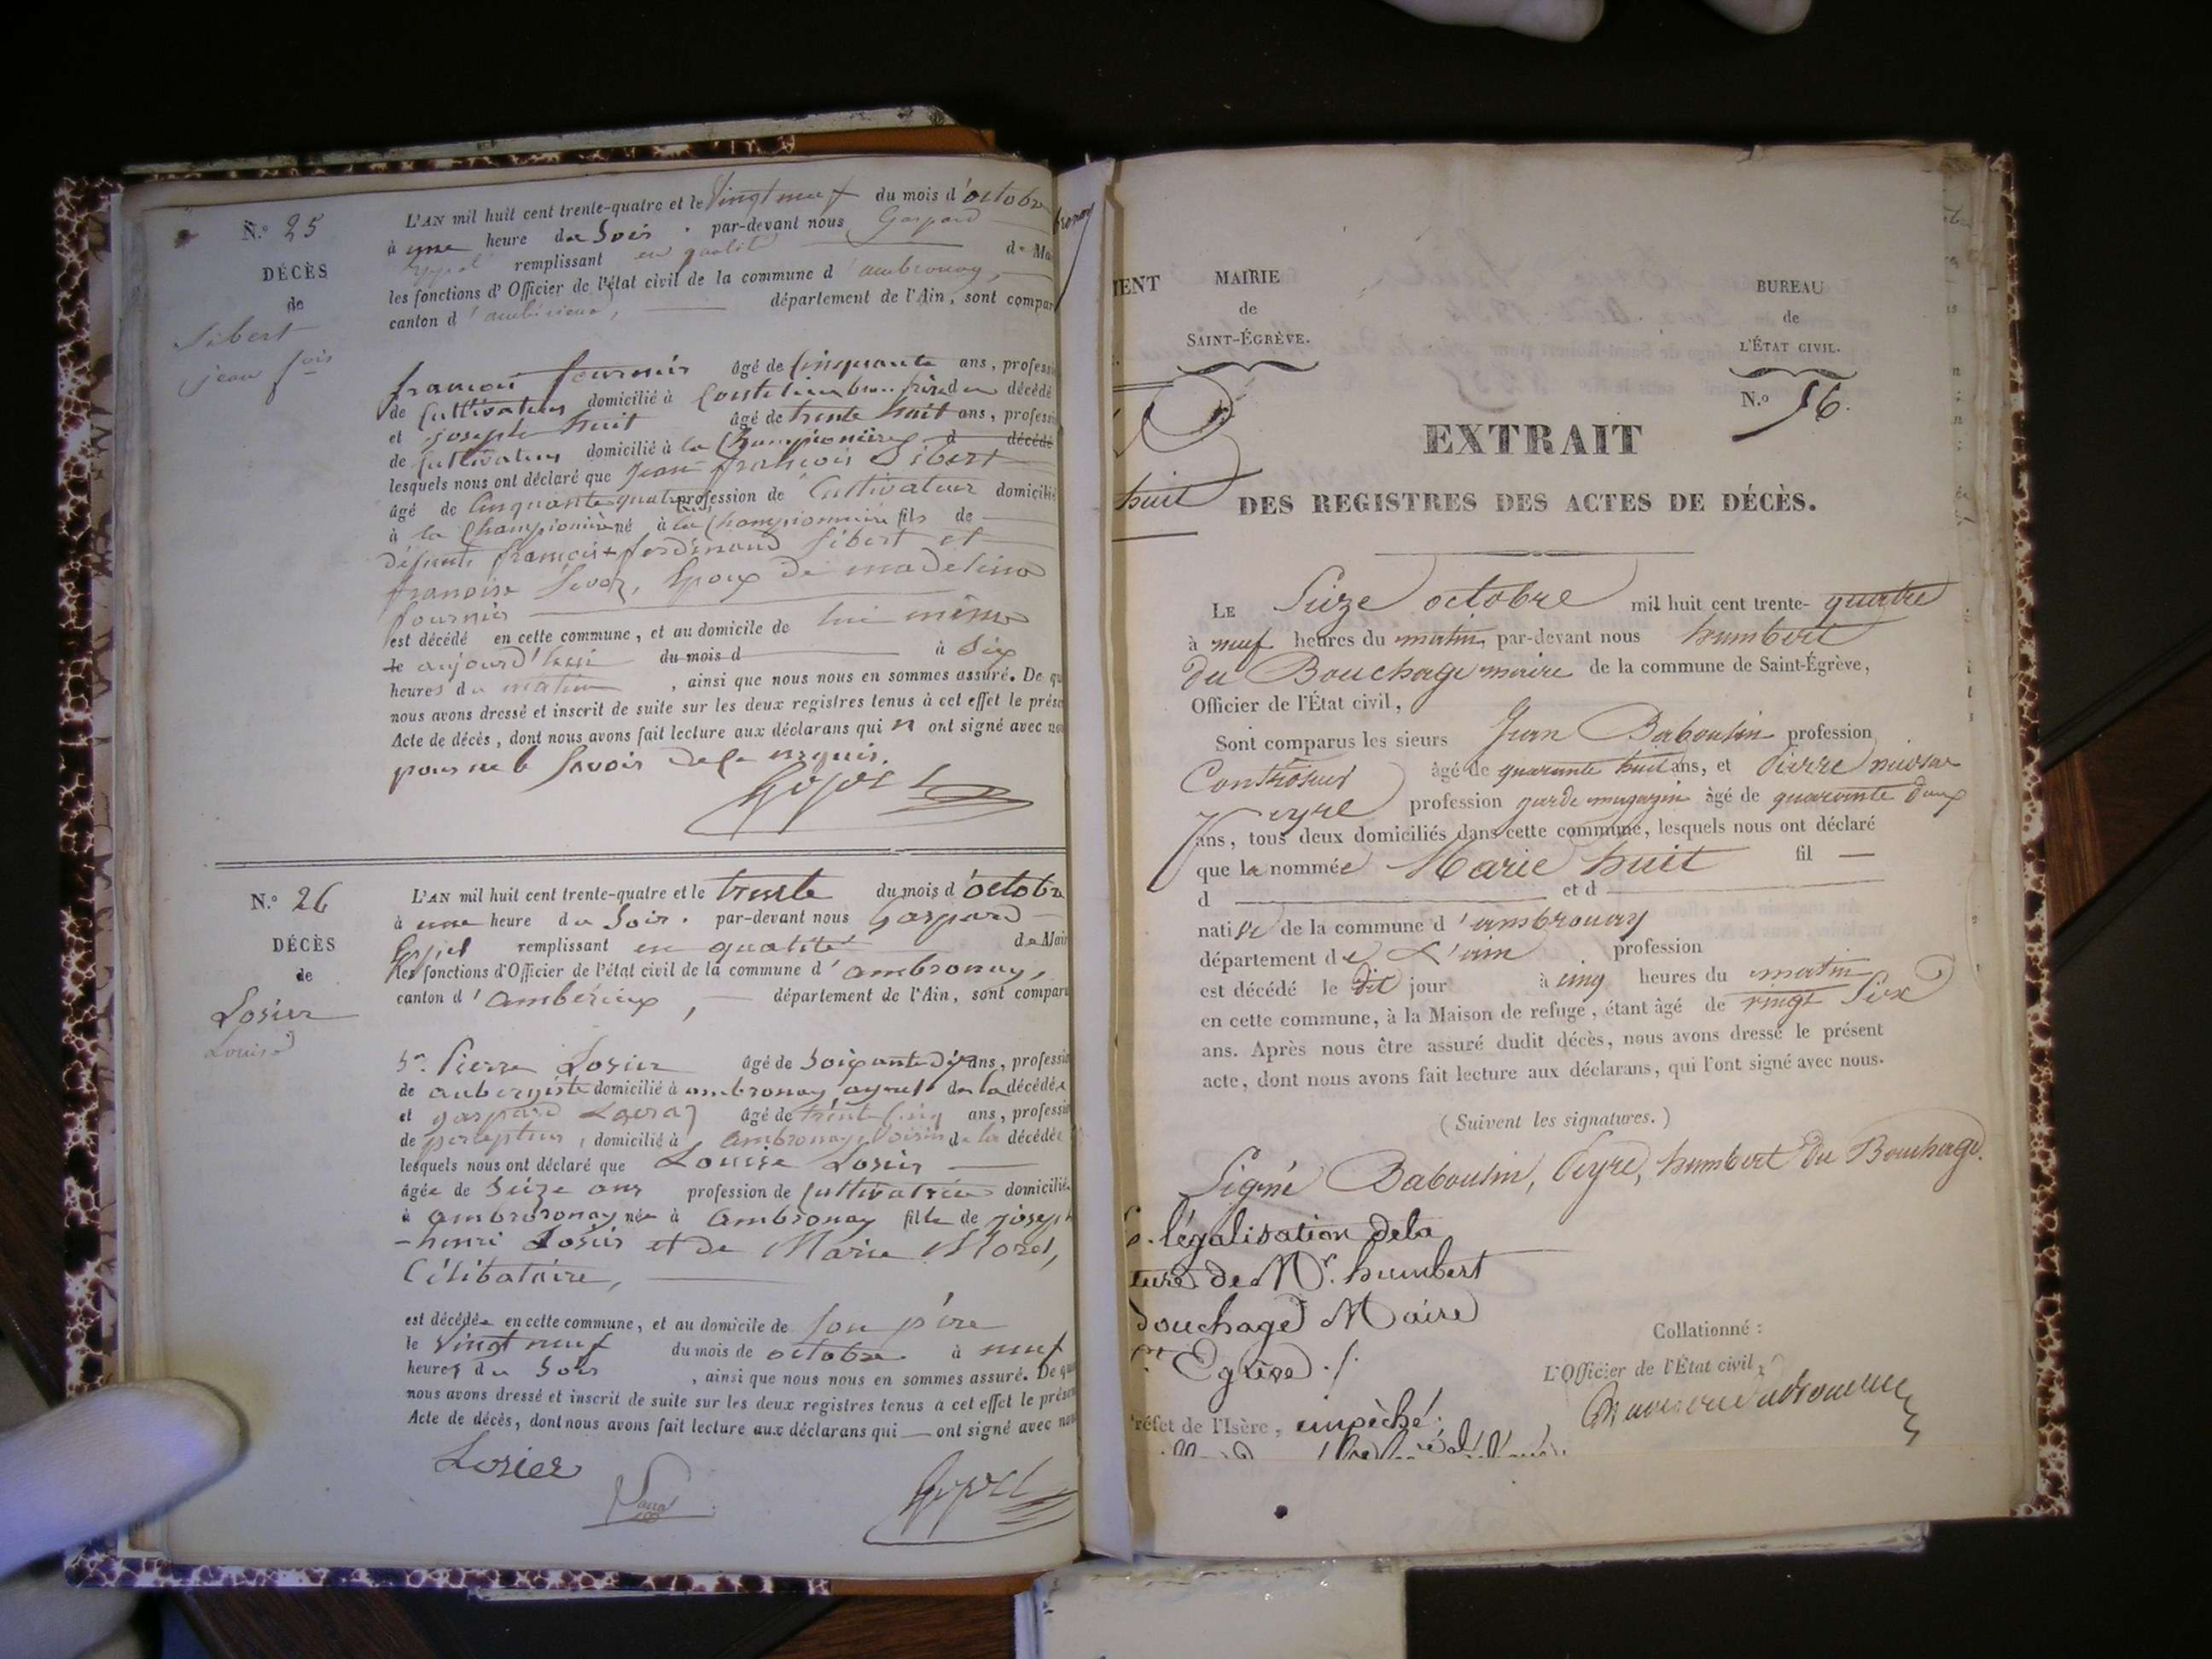 N.º 25
DÉCÈS
de
Sibert
jean fois
L'AN mil huit cent trente-quatre et le Vingt neuf du mois d'octobre
à une heure du Soir . par-devant nous Gaspard
remplissant en qualité de Mai
les fonctions d'Officier de l'état civil de la commune d'ambronay,
canton d'ambérieux, département de l'Ain, sont compar
françois fournier âgé de Cinquante ans, professi
de Cultivateur domicilié à beau frère du décédé
et joseph huit âgé de trente huit ans, professi
de Cultivateur domicilié à la Championnière d décédé
lesquels nous ont déclaré que jean françois Sibert
âgé de Cinquante quatre profession de Cultivateur domicilié
à la Championnière né à la Championnière fils de
défunts françois ferdinand Sibert et
françoise époux de madeleine
fournier
est décédé en cette commune, et au domicile de lui même
le aujourd'hui du mois d à Six
heures du matin , ainsi que nous nous en sommes assuré. De qu
nous avons dressé et inscrit de suite sur les deux registres tenus à cet effet le prése
Acte de décès, dont nous avons fait lecture aux déclarans qui n ont signé avec no
pour ne le Savoir de ce requis.
N.º 26
DÉCÈS
de
Losier
Louise
L'AN mil huit cent trente-quatre et le trente du mois d'octobre
à une heure du Soir . par-devant nous Gaspard
remplissant en qualité de Mair
les fonctions d'Officier de l'état civil de la commune d'ambronay,
canton d'ambérieux, département de l'Ain, sont comparu
Sr. Pierre Losier âgé de Soixante Dix ans, professio
de aubergiste domicilié à ambronay, ayeul de la décédée
et gaspard âgé de trente Cinq ans, professio
de percepteur, domicilié à ambronay Voisin de la décédée
lesquels nous ont déclaré que Louise Losier
âgée de Seize ans profession de Cultivatrice domiciliée
à ambroronay née à ambronay fille de joseph
-henri Losier et de Marie Morel,
Célibataire,
est décédée en cette commune, et au domicile de son père
le Vingt neuf du mois de octobre à neuf
heures du Soir , ainsi que nous nous en sommes assuré. De qu
nous avons dressé et inscrit de suite sur les deux registres tenus à cet effet le présen
Acte de décès, dont nous avons fait lecture aux déclarans qui — ont signé avec nou
Losier
MENT
huit
MAIRIE
de
SAINT-ÉGRÈVE.
BUREAU
de
L'ÉTAT CIVIL.
N.º 56.
EXTRAIT
DES REGISTRES DES ACTES DE DÉCÈS.
LE Seize octobre mil huit cent trente-quatre
à neuf heures du matin, par-devant nous humbert
du Bouchage maire de la commune de Saint-Égrève,
Officier de l'État civil,
Sont comparus les sieurs Jean Baboulin profession
âgé de quarante huit ans, et Pierre
profession garde magazin âgé de quarante deux
ans, tous deux domiciliés dans cette commune, lesquels nous ont déclaré
que la nommée Marie huit fil —
d et d
native de la commune d'ambronay
département de L'ain profession
est décédé le dit jour à cinq heures du matin
en cette commune, à la Maison de refuge, étant âgé de vingt Six
ans. Après nous être assuré dudit décès, nous avons dressé le présent
acte, dont nous avons fait lecture aux déclarans, qui l'ont signé avec nous.
(Suivent les signatures.)
Signé Baboulin, Peyre, humbert du Bouchage.
légalisation dela
ture de Mr. humbert
Bouchage Maire
St Egrève ./.
Collationné :
L'Officier de l'État civil,
réfet de l'Isère, empêché.